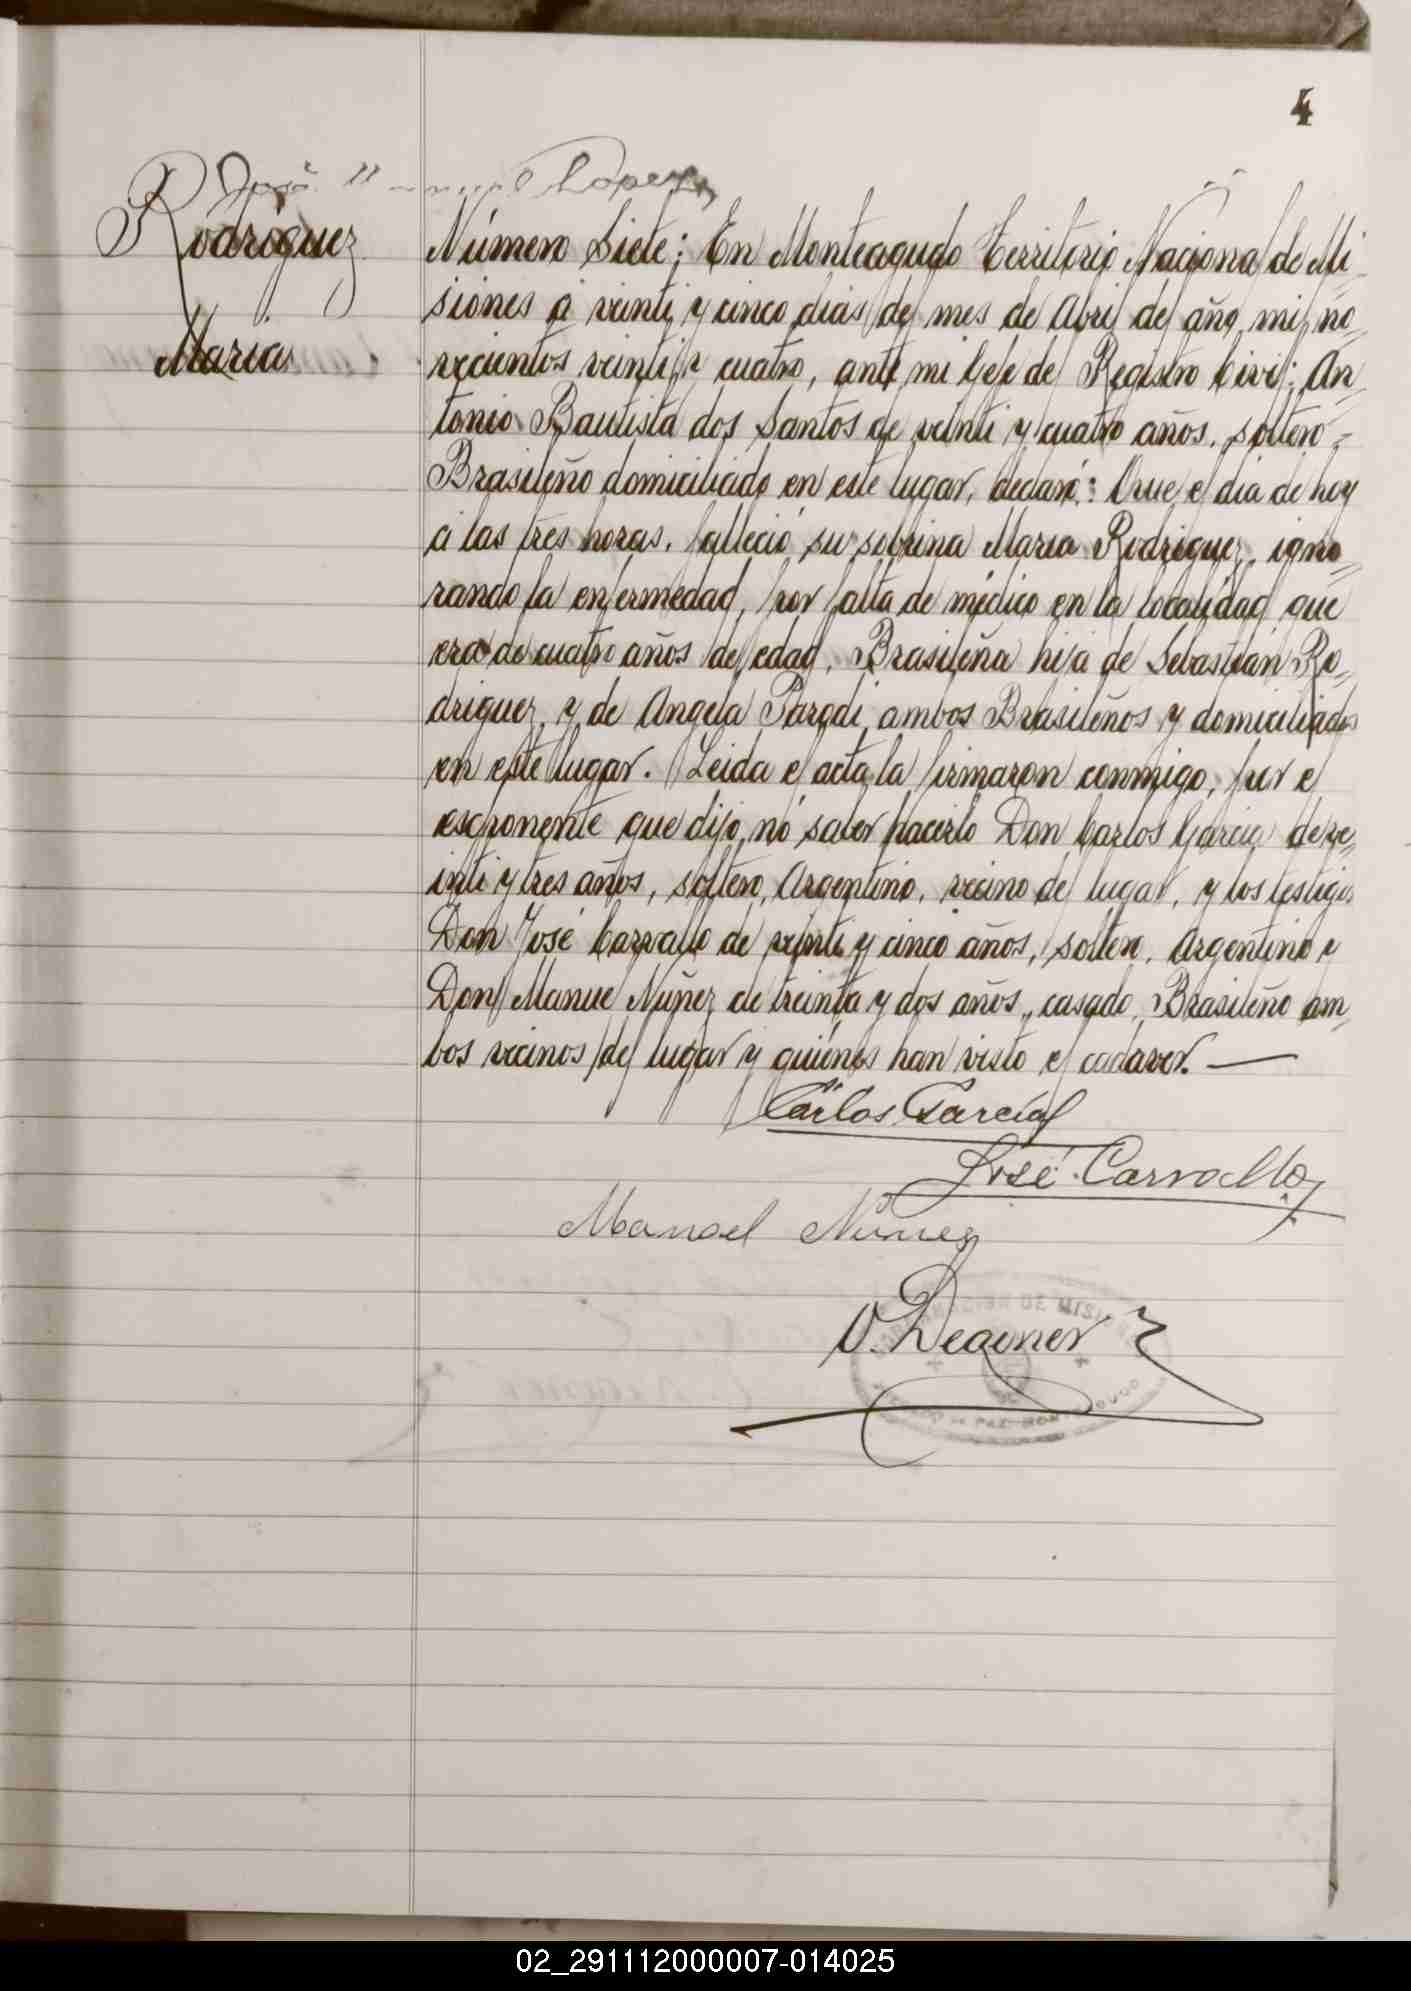 4
José López
Rodriguez
Maria
Número Siete: En Monteagudo Territorio Nacional de Mi
siones á veinti y cinco dias del mes de Abril del año mil no
vecientos veinti y cuatro, ante mi Gefe del Registro Civil; An
tonio Bautista dos Santos de veinti y cuatro años, soltero
Brasileño domiciliado en este lugar, declaró: Que el dia de hoy
á las tres horas, falleció su sobrina Maria Rodriguez, igno
rando la enfermedad, por falta de médico en la localidad que
era de cuatro años de edad, Brasileña hija de Sebastián Ro
driguez, y de Angela Parodi, ambos Brasileños y domiciliados
en este lugar. Leida el acta la firmaron conmigo, por el
esxponente que dijo nó saber hacerlo Don Carlos Garcia de ve
inti y tres años, soltero, Argentino, vecino del lugar, y los testigos
Don José Carvallo de veinti y cinco años, soltero, Argentino y
Don Manuel Nuñez de treinta y dos años, casado, Brasileño am
bos vecinos del lugar y quiénes han visto el cadaver.—
Carlos Garcia
José Carvallo
Manoel Nunez
O. Degoner
02_291112000007-014025